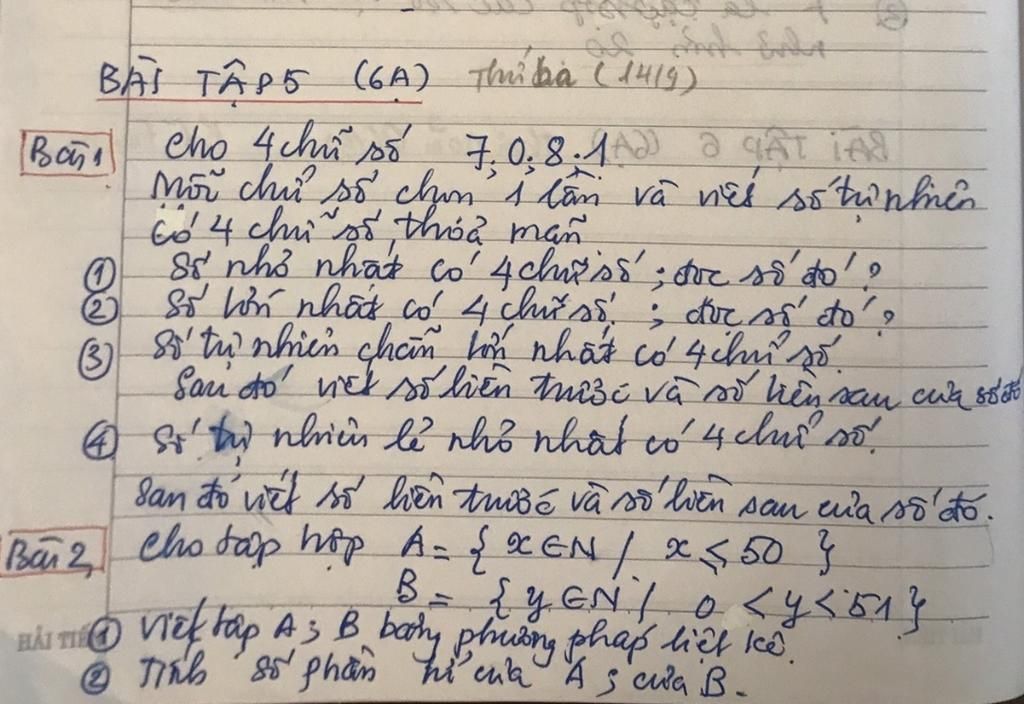 BÀI TẬP 5 (6A) Thứ ba (14/9)
Bài 1 Cho 4 chữ số 7; 0; 8; 1
Mỗi chữ số chọn 1 lần và viết số tự nhiên
có 4 chữ số, thỏa mãn
① Số nhỏ nhất có 4 chữ số; đọc số đó?
② Số lớn nhất có 4 chữ số; đọc số đó?
③ Số tự nhiên chẵn lớn nhất có 4 chữ số.
Sau đó viết số liền trước và số liền sau của số đó
④ Số tự nhiên lẻ nhỏ nhất có 4 chữ số.
Sau đó viết số liền trước và số liền sau của số đó.
Bài 2 Cho tập hợp A = { x ∈ N / x ≤ 50 }
B = { y ∈ N / 0 < y < 51 }
① Viết tập A; B bằng phương pháp liệt kê.
② Tính số phần tử của A; của B.